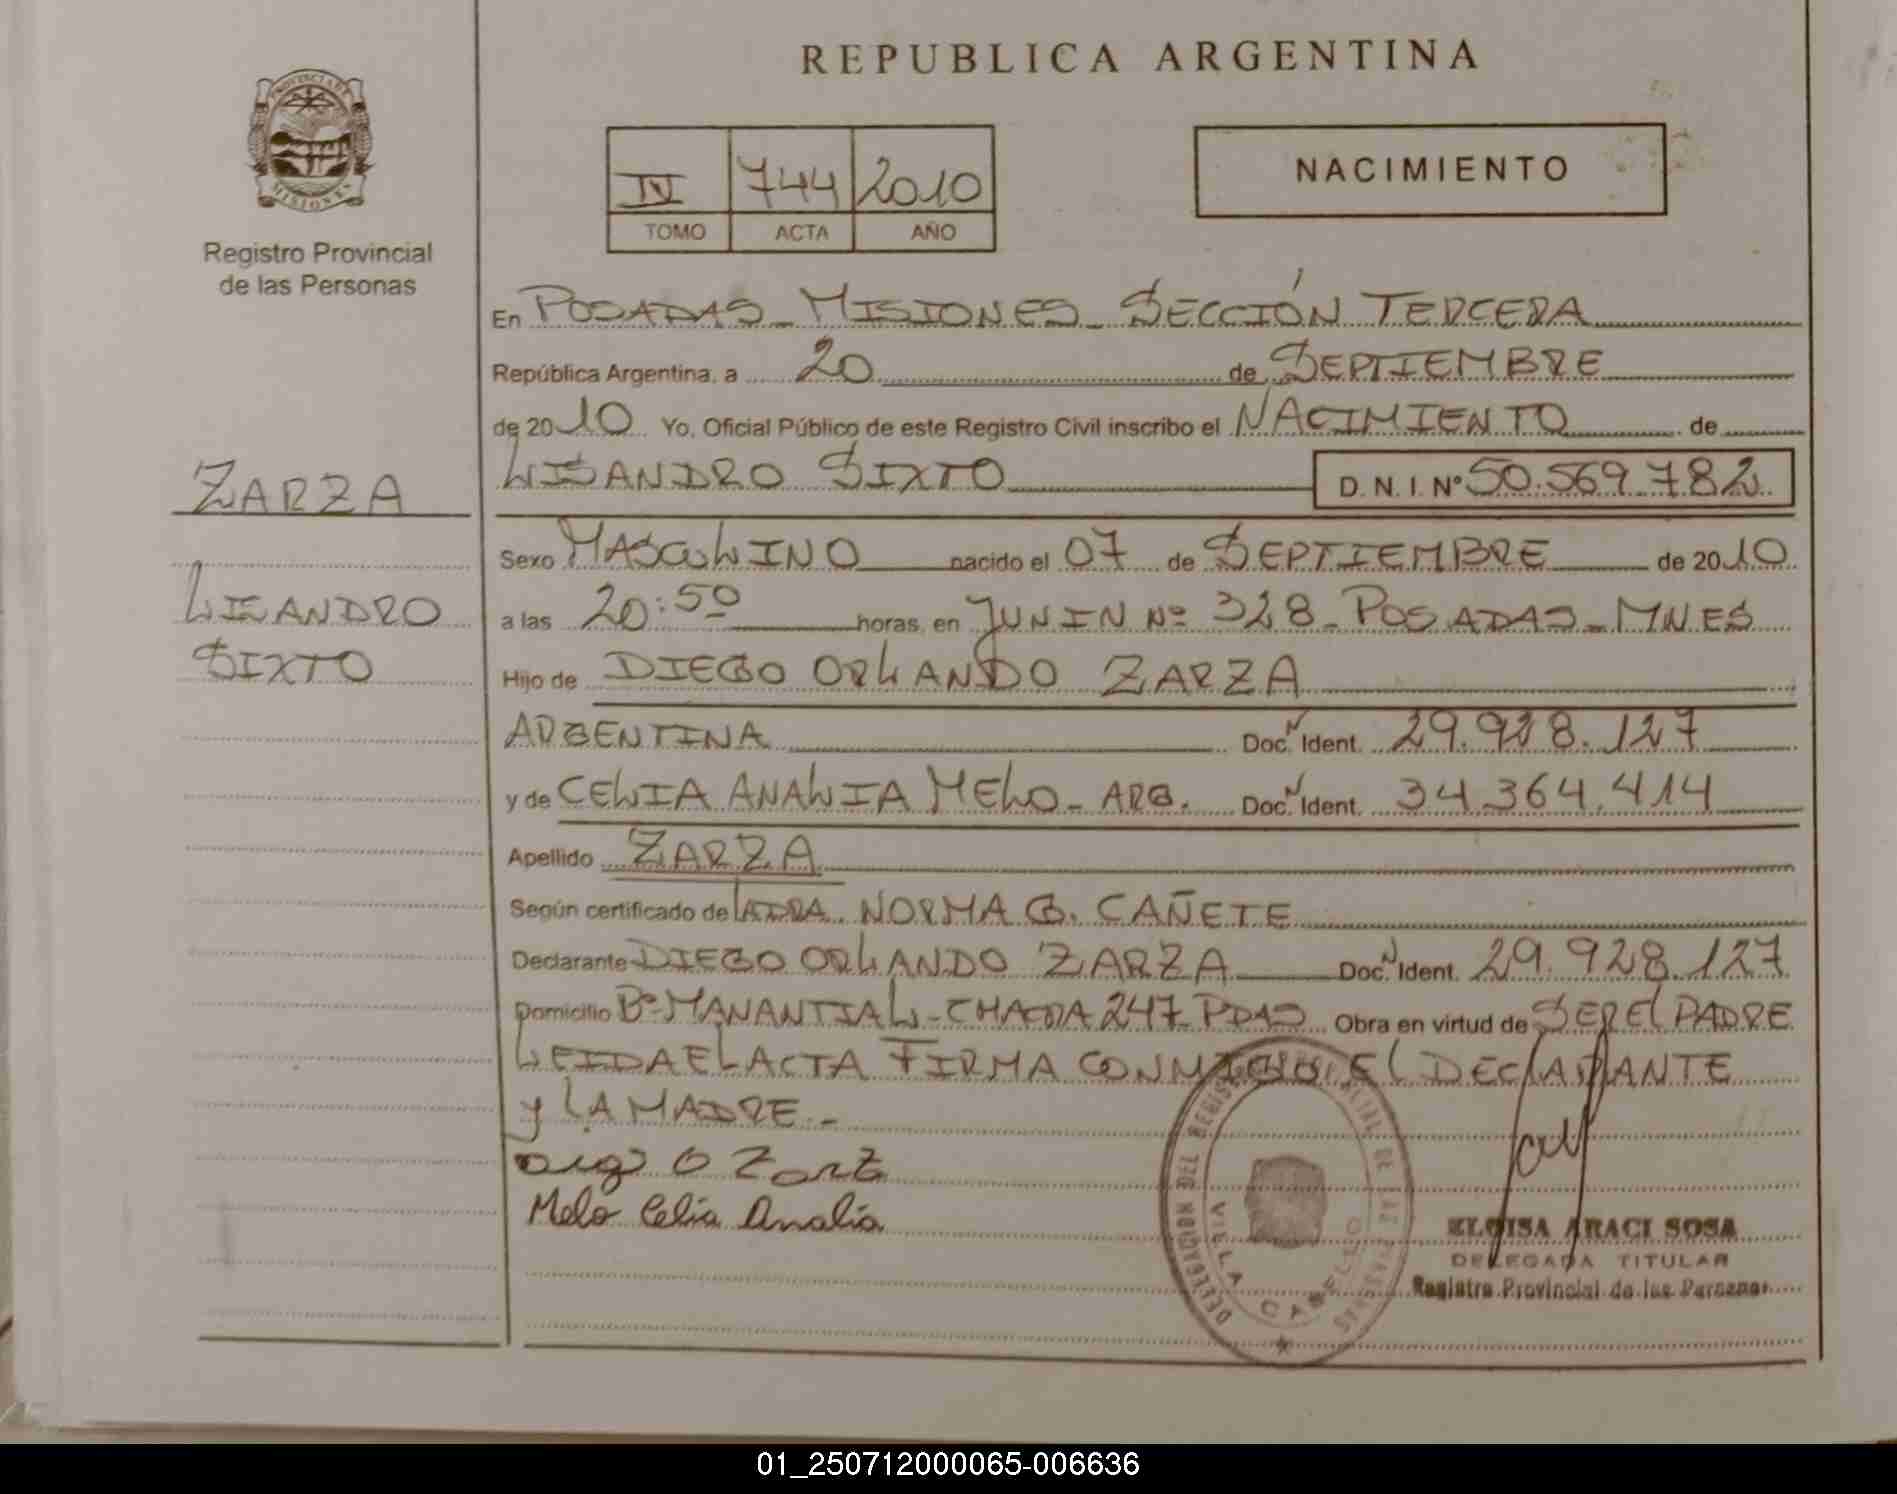 REPUBLICA ARGENTINA
PROVINCIA DE
MISIONES
Registro Provincial
de las Personas
IV 744 2010
TOMO ACTA AÑO
NACIMIENTO
En POSADAS - MISIONES - SECCIÓN TERCERA
República Argentina, a 20 de SEPTIEMBRE
de 2010 Yo, Oficial Público de este Registro Civil inscribo el NACIMIENTO de
ZARZA
LISANDRO SIXTO D.N.I. Nº 50.569.782
Sexo MASCULINO nacido el 07 de SEPTIEMBRE de 2010
LISANDRO
SIXTO
a las 20:50 horas, en JUNIN Nº 328 - POSADAS - MNES
Hijo de DIEGO ORLANDO ZARZA
ARGENTINA Doc. N Ident. 29.928.127
y de CELIA ANALIA MELO - ARG. Doc. N Ident. 34.364.414
Apellido ZARZA
Según certificado de LA DRA. NORMA G. CAÑETE
Declarante DIEGO ORLANDO ZARZA Doc. N Ident. 29.928.127
Domicilio Bº MANANTIAL - CHACRA 247 - PDAS Obra en virtud de SER EL PADRE
LEIDA EL ACTA FIRMA CONMIGO EL DECLARANTE
Y LA MADRE -
O Zarza
Melo Celia Analia
DELEGACION DEL REGISTRO PROVINCIAL DE LAS PERSONAS
VILLA CABELLO
ELOISA ARACI SOSA
DELEGADA TITULAR
Registro Provincial de las Personas
01_250712000065-006636